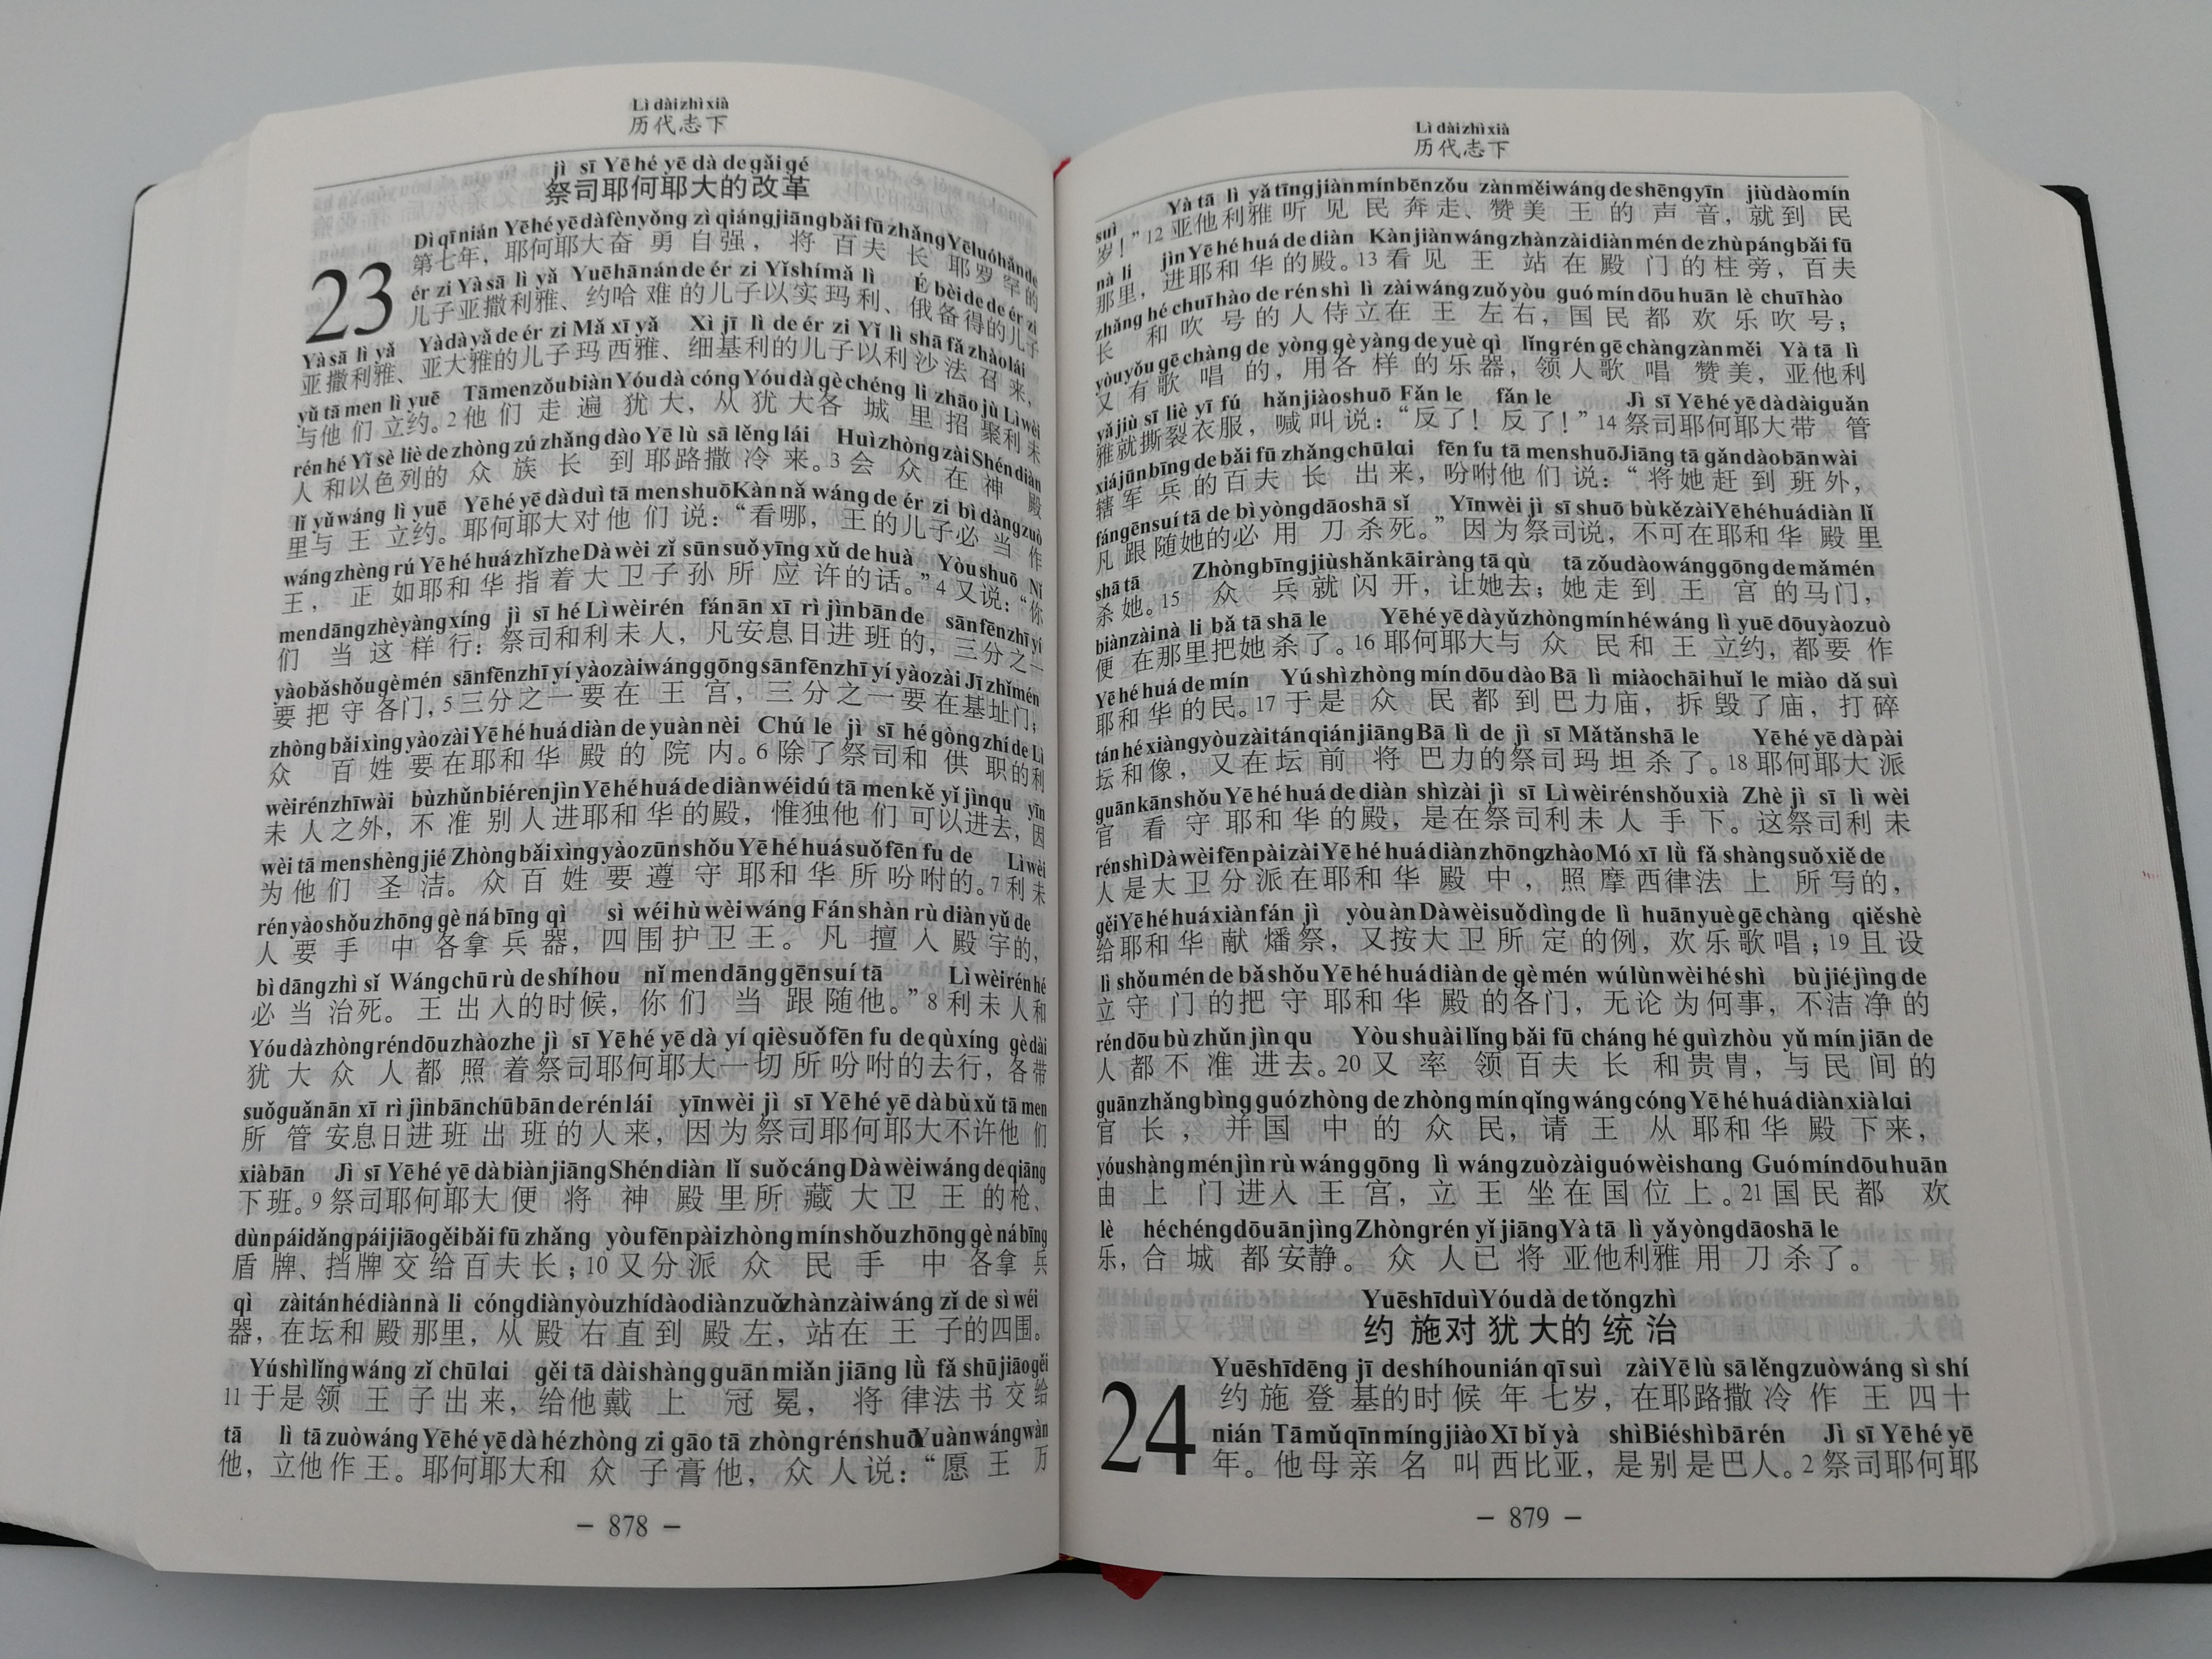 Lì dài zhì xià
历代志下
jì sī Yē hé yē dà de gǎi gé
祭司耶何耶大的改革
Dì qī nián Yē hé yē dà fèn yǒng zì qiáng jiāng bǎi fū zhǎng Yē luó hǎn de
23 第七年，耶何耶大奋勇自强，将百夫长耶罗罕的
ér zi Yà sā lì yǎ Yuē hā nán de ér zi Yǐ shí mǎ lì É bèi de de ér zi
儿子亚撒利雅、约哈难的儿子以实玛利、俄备得的儿子
Yà sā lì yǎ Yà dà yǎ de ér zi Mǎ xī yǎ Xì jī lì de ér zi Yǐ lì shā fǎ zhào lái
亚撒利雅、亚大雅的儿子玛西雅、细基利的儿子以利沙法召来，
yǔ tā men lì yuē Tā men zǒu biàn Yóu dà cóng Yóu dà gè chéng lì zhāo jù Lì wèi
与他们立约。2他们走遍犹大，从犹大各城里招聚利未
rén hé Yǐ sè liè de zhòng zú zhǎng dào Yē lù sā lěng lái Huì zhòng zài Shén diàn
人和以色列的众族长到耶路撒冷来。3会众在神殿
lǐ yǔ wáng lì yuē Yē hé yē dà duì tā men shuō Kàn nǎ wáng de ér zi bì dàng zuò
里与王立约。耶何耶大对他们说：“看哪，王的儿子必当作
wáng zhèng rú Yē hé huá zhǐ zhe Dà wèi zǐ sūn suǒ yīng xǔ de huà Yòu shuō Nǐ
王，正如耶和华指着大卫子孙所应许的话。”4又说：“你
men dāng zhè yàng xíng jì sī hé Lì wèi rén fán ān xī rì jìn bān de sān fēn zhī yí
们当这样行：祭司和利未人，凡安息日进班的，三分之一
yào bǎ shǒu gè mén sān fēn zhī yí yào zài wáng gōng sān fēn zhī yí yào zài Jī zhǐ mén
要把守各门，5三分之一要在王宫，三分之一要在基址门；
zhòng bǎi xìng yào zài Yē hé huá diàn de yuàn nèi Chú le jì sī hé gòng zhí de Lì
众百姓要在耶和华殿的院内。6除了祭司和供职的利
wèi rén zhī wài bù zhǔn bié ren jìn Yē hé huá de diàn wéi dú tā men kě yǐ jìn qu yīn
未人之外，不准别人进耶和华的殿，惟独他们可以进去，因
wèi tā men shèng jié Zhòng bǎi xìng yào zūn shǒu Yē hé huá suǒ fēn fu de Lì wèi
为他们圣洁。众百姓要遵守耶和华所吩咐的。7利未
rén yào shǒu zhōng gè ná bīng qì sì wéi hù wèi wáng Fán shàn rù diàn yǔ de
人要手中各拿兵器，四围护卫王。凡擅入殿宇的，
bì dāng zhì sǐ Wáng chū rù de shí hou nǐ men dāng gēn suí tā Lì wèi rén hé
必当治死。王出入的时候，你们当跟随他。”8利未人和
Yóu dà zhòng rén dōu zhào zhe jì sī Yē hé yē dà yí qiè suǒ fēn fu de qù xíng gè dài
犹大众人都照着祭司耶何耶大一切所吩咐的去行，各带
suǒ guǎn ān xī rì jìn bān chū bān de rén lái yīn wèi jì sī Yē hé yē dà bù xǔ tā men
所管安息日进班出班的人来，因为祭司耶何耶大不许他们
xià bān Jì sī Yē hé yē dà biàn jiāng Shén diàn lǐ suǒ cáng Dà wèi wáng de qiāng
下班。9祭司耶何耶大便将神殿里所藏大卫王的枪、
dùn pái dǎng pái jiāo gěi bǎi fū zhǎng yòu fēn pài zhòng mín shǒu zhōng gè ná bīng
盾牌、挡牌交给百夫长；10又分派众民手中各拿兵
qì zài tán hé diàn nà li cóng diàn yòu zhí dào diàn zuǒ zhàn zài wáng zǐ de sì wéi
器，在坛和殿那里，从殿右直到殿左，站在王子的四围。
Yú shì lǐng wáng zǐ chū lai gěi tā dài shàng guān miǎn jiāng lǜ fǎ shū jiāo gěi
11于是领王子出来，给他戴上冠冕，将律法书交给
tā lì tā zuò wáng Yē hé yē dà hé zhòng zi gāo tā zhòng rén shuō Yuàn wáng wàn
他，立他作王。耶何耶大和众子膏他，众人说：“愿王万
– 878 –
Lì dài zhì xià
历代志下
suì Yà tā lì yǎ tīng jiàn mín bēn zǒu zàn měi wáng de shēng yīn jiù dào mín
岁！”12亚他利雅听见民奔走、赞美王的声音，就到民
nà li jìn Yē hé huá de diàn Kàn jiàn wáng zhàn zài diàn mén de zhù páng bǎi fū
那里，进耶和华的殿。13看见王站在殿门的柱旁，百夫
zhǎng hé chuī hào de rén shì lì zài wáng zuǒ yòu guó mín dōu huān lè chuī hào
长和吹号的人侍立在王左右，国民都欢乐吹号；
yòu yǒu gē chàng de yòng gè yàng de yuè qì lǐng rén gē chàng zàn měi Yà tā lì
又有歌唱的，用各样的乐器，领人歌唱赞美，亚他利
yǎ jiù sī liè yī fú hǎn jiào shuō Fǎn le fǎn le Jì sī Yē hé yē dà dài guǎn
雅就撕裂衣服，喊叫说：“反了！反了！”14祭司耶何耶大带管
xiá jūn bīng de bǎi fū zhǎng chū lai fēn fu tā men shuō Jiāng tā gǎn dào bān wài
辖军兵的百夫长出来，吩咐他们说：“将她赶到班外，
fán gēn suí tā de bì yòng dāo shā sǐ Yīn wèi jì sī shuō bù kě zài Yē hé huá diàn lǐ
凡跟随她的必用刀杀死。”因为祭司说，不可在耶和华殿里
shā tā Zhòng bīng jiù shǎn kāi ràng tā qù tā zǒu dào wáng gōng de mǎ mén
杀她。15众兵就闪开，让她去；她走到王宫的马门，
biàn zài nà li bǎ tā shā le Yē hé yē dà yǔ zhòng mín hé wáng lì yuē dōu yào zuò
便在那里把她杀了。16耶何耶大与众民和王立约，都要作
Yē hé huá de mín Yú shì zhòng mín dōu dào Bā lì miào chāi huǐ le miào dǎ suì
耶和华的民。17于是众民都到巴力庙，拆毁了庙，打碎
tán hé xiàng yòu zài tán qián jiāng Bā lì de jì sī Mǎ tǎn shā le Yē hé yē dà pài
坛和像，又在坛前将巴力的祭司玛坦杀了。18耶何耶大派
guān kān shǒu Yē hé huá de diàn shì zài jì sī Lì wèi rén shǒu xià Zhè jì sī lì wèi
官看守耶和华的殿，是在祭司利未人手下。这祭司利未
rén shì Dà wèi fēn pài zài Yē hé huá diàn zhōng zhào Mó xī lǜ fǎ shàng suǒ xiě de
人是大卫分派在耶和华殿中，照摩西律法上所写的，
gěi Yē hé huá xiàn fán jì yòu àn Dà wèi suǒ dìng de lì huān yuè gē chàng qiě shè
给耶和华献燔祭，又按大卫所定的例，欢乐歌唱；19且设
lì shǒu mén de bǎ shǒu Yē hé huá diàn de gè mén wú lùn wèi hé shì bù jié jìng de
立守门的把守耶和华殿的各门，无论为何事，不洁净的
rén dōu bù zhǔn jìn qu Yòu shuài lǐng bǎi fū cháng hé guì zhòu yǔ mín jiān de
人都不准进去。20又率领百夫长和贵胄，与民间的
guān zhǎng bìng guó zhòng de zhòng mín qǐng wáng cóng Yē hé huá diàn xià lai
官长，并国中的众民，请王从耶和华殿下来，
yóu shàng mén jìn rù wáng gōng lì wáng zuò zài guó wèi shang Guó mín dōu huān
由上门进入王宫，立王坐在国位上。21国民都欢
lè hé chéng dōu ān jìng Zhòng rén yǐ jiāng Yà tā lì yǎ yòng dāo shā le
乐，合城都安静。众人已将亚他利雅用刀杀了。
Yuē shī duì Yóu dà de tǒng zhì
约施对犹大的统治
Yuē shī dēng jī de shí hou nián qī suì zài Yē lù sā lěng zuò wáng sì shí
24 约施登基的时候年七岁，在耶路撒冷作王四十
nián Tā mǔ qīn míng jiào Xī bǐ yà shì Bié shì bā rén Jì sī Yē hé yē
年。他母亲名叫西比亚，是别是巴人。2祭司耶何耶
– 879 –